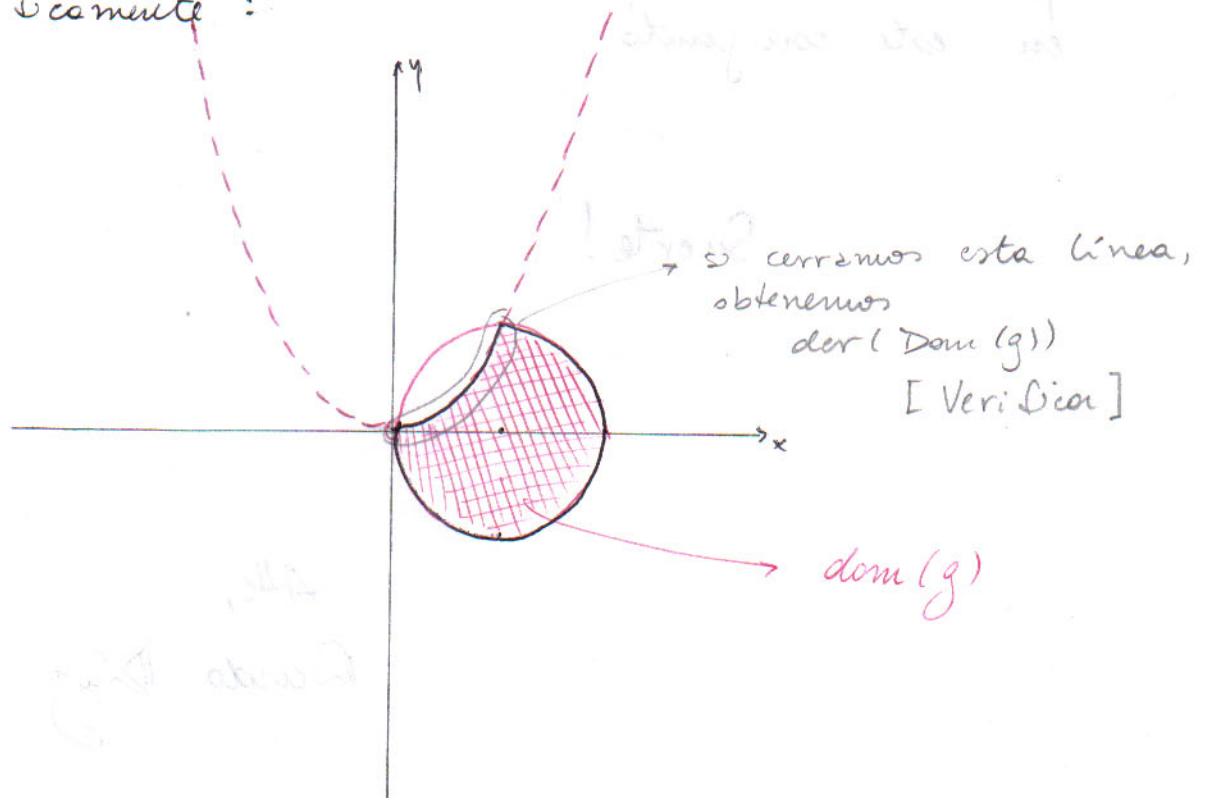 icamente :
y
si cerramos esta línea,
obtenemos
der ( Dom (g))
[ Verifica ]
x
dom (g)